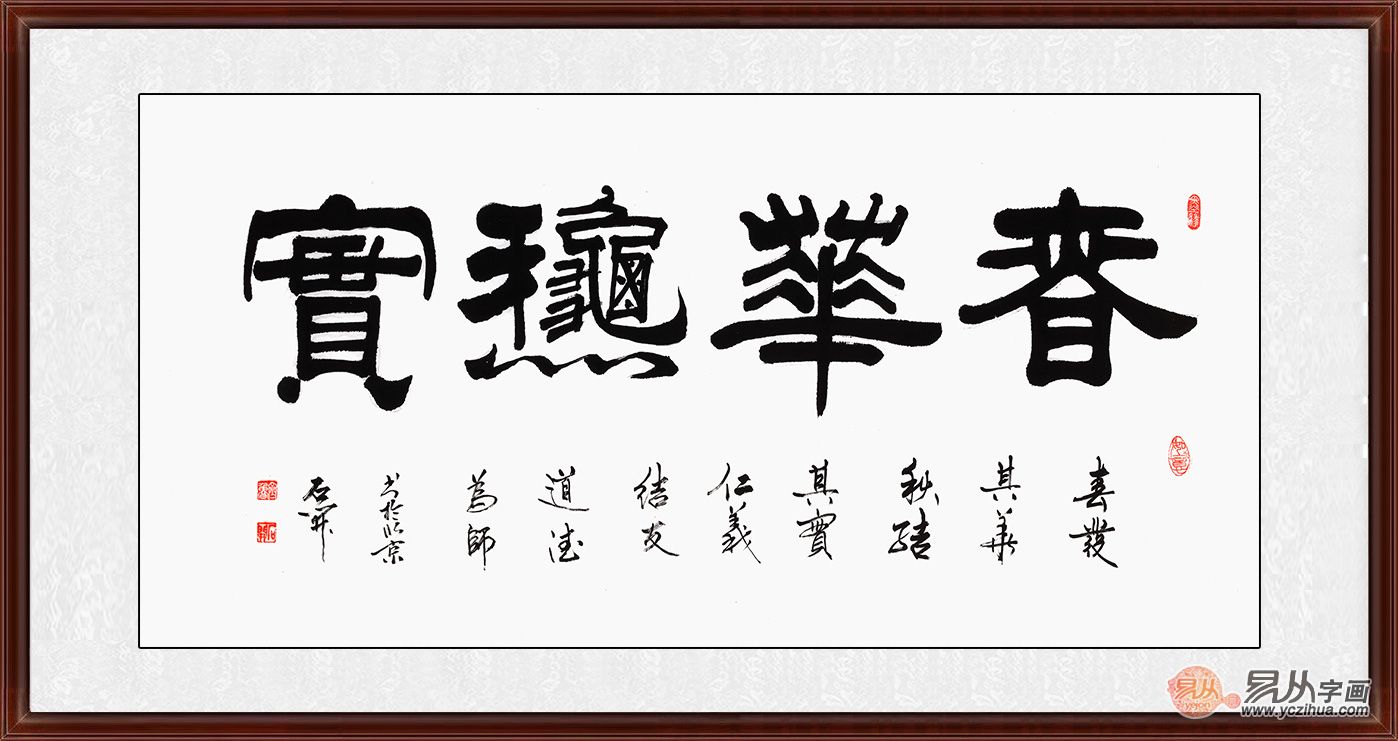 春華龝實
春發
其華
秋結
其實
仁義
結友
道德
為師
书於北京
石开
易从
易从字画
www.yczihua.com